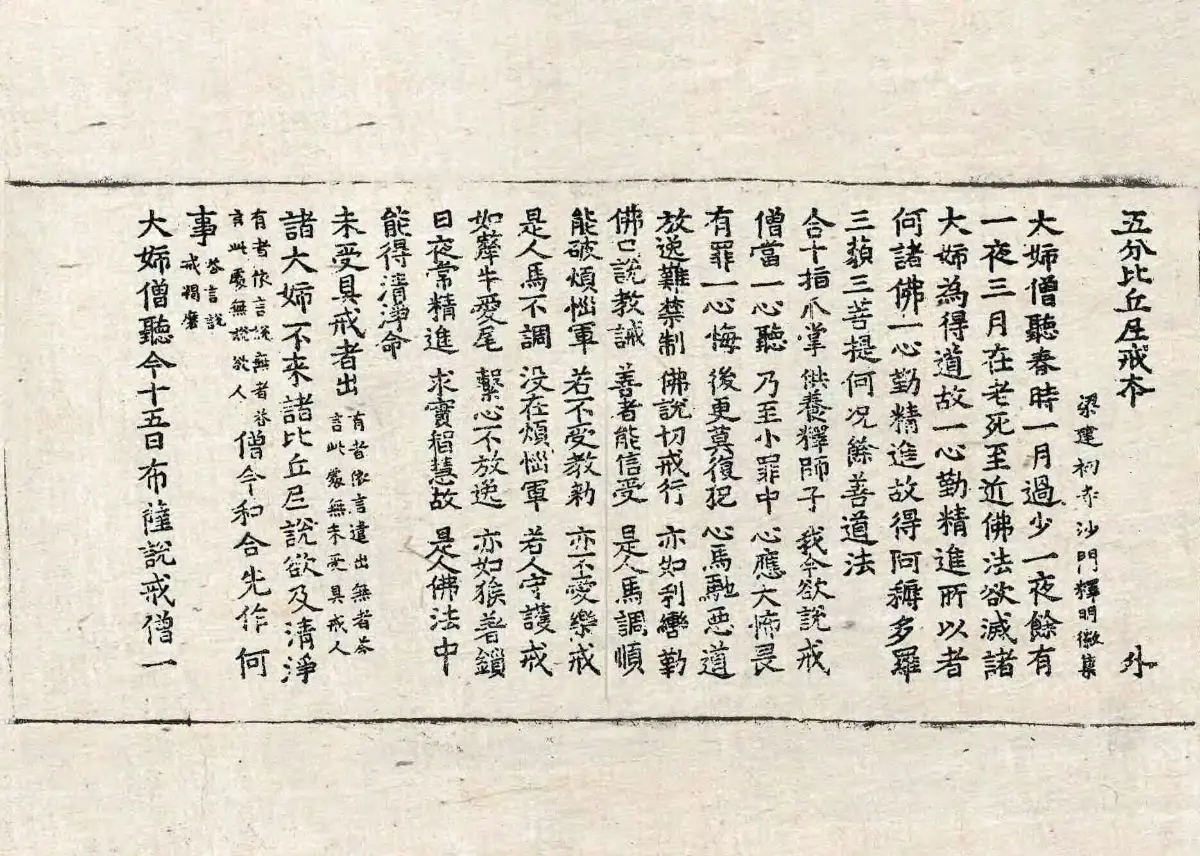 五分比丘尼戒本 外
梁建初寺沙門釋明徽集
大姉僧聽春時一月過少一夜餘有
一夜三月在老死至近佛法欲滅諸
大姉為得道故一心勤精進所以者
何諸佛一心勤精進故得阿耨多羅
三藐三菩提何況餘善道法
合十指爪掌 供養釋師子 我今欲說戒
僧當一心聽 乃至小罪中 心應大怖畏
有罪一心悔 後更莫復犯 心馬馳惡道
放逸難禁制 佛說切戒行 亦如利轡勒
佛口說教誡 善者能信受 是人馬調順
能破煩惱軍 若不受教勑 亦不愛樂戒
是人馬不調 没在煩惱軍 若人守護戒
如犛牛愛尾 繫心不放逸 亦如猴著鎖
日夜常精進 求實智慧故 是人佛法中
能得清淨命
未受具戒者出 有者依言遣出無者荅言此處無未受具戒人
諸大姉不來諸比丘尼說欲及清淨
有者依言說無者荅言此處無說欲人 僧今和合先作何
事 荅言說戒羯磨
大姉僧聽今十五日布薩說戒僧一